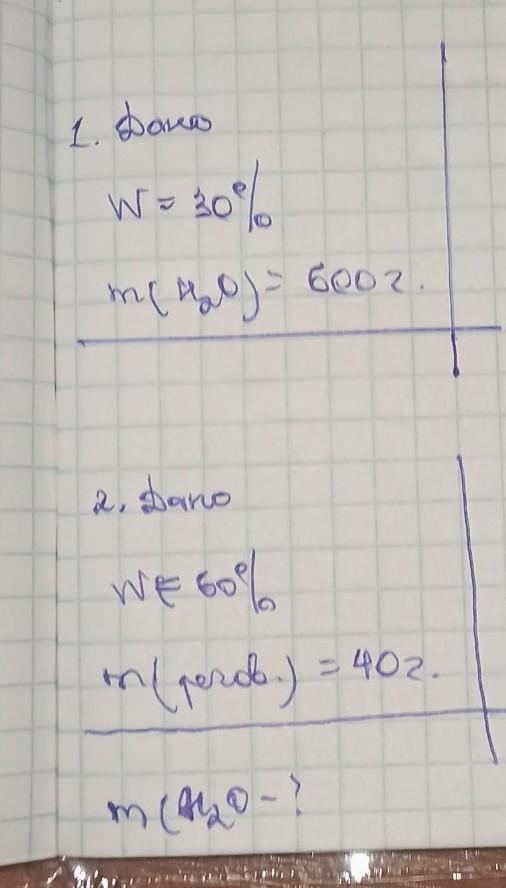 1. Дано
W = 30%
m(H₂O) = 600г.
2. Дано
W = 60%
m(речов.) = 40г.
m(H₂O - ?